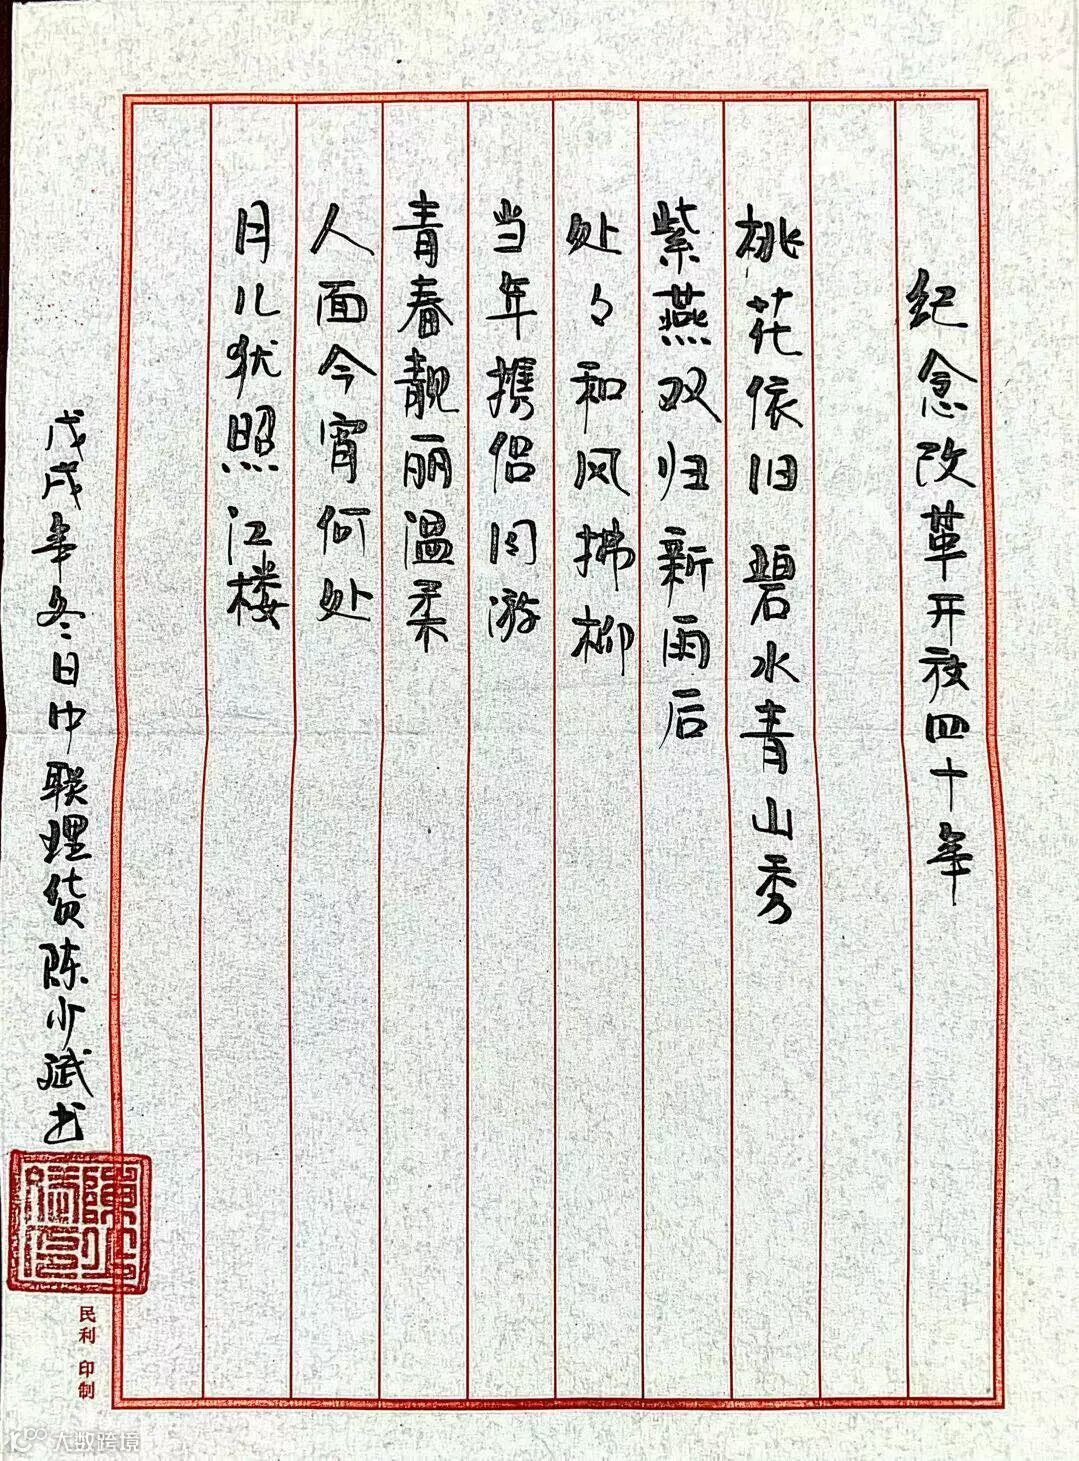 纪念改革开放四十年
桃花依旧 碧水青山秀
紫燕双归 新雨后
处々和风拂柳
当年携侣同游
青春靓丽温柔
人面今宵何处
月儿犹照江楼
戊戌年冬日中联理货陈少斌书
民利 印制
大数跨境